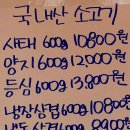 국내산 소고기
사태 600g 10800원
양지 600g 12,000원
등심 600g 13,800원
냉장삼겹 600g 10800
냉동삼겹 600g 8900원